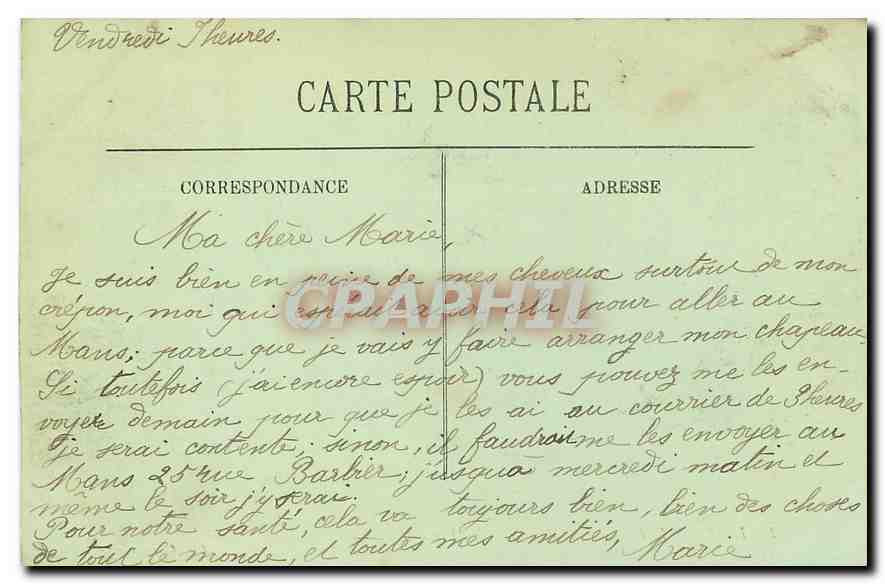 Vendredi 7 heures.
CARTE POSTALE
CORRESPONDANCE
ADRESSE
Ma chère Marie,
Je suis bien en peine de mes cheveux surtout de mon
crépon, moi qui espérait avoir cela pour aller au
Mans; parce que je vais y faire arranger mon chapeau.
Si toutefois (j'ai encore espoir) vous pouvez me les en-
voyer demain pour que je les ai au courrier de 3 heures
je serai contente; sinon, il faudrait me les envoyer au
Mans 25 rue Barbier; jusqu'à mercredi matin et
même le soir j'y serai.
Pour notre santé, cela va toujours bien, bien des choses
de tout le monde, et toutes mes amitiés, Marie
CPAPHIL